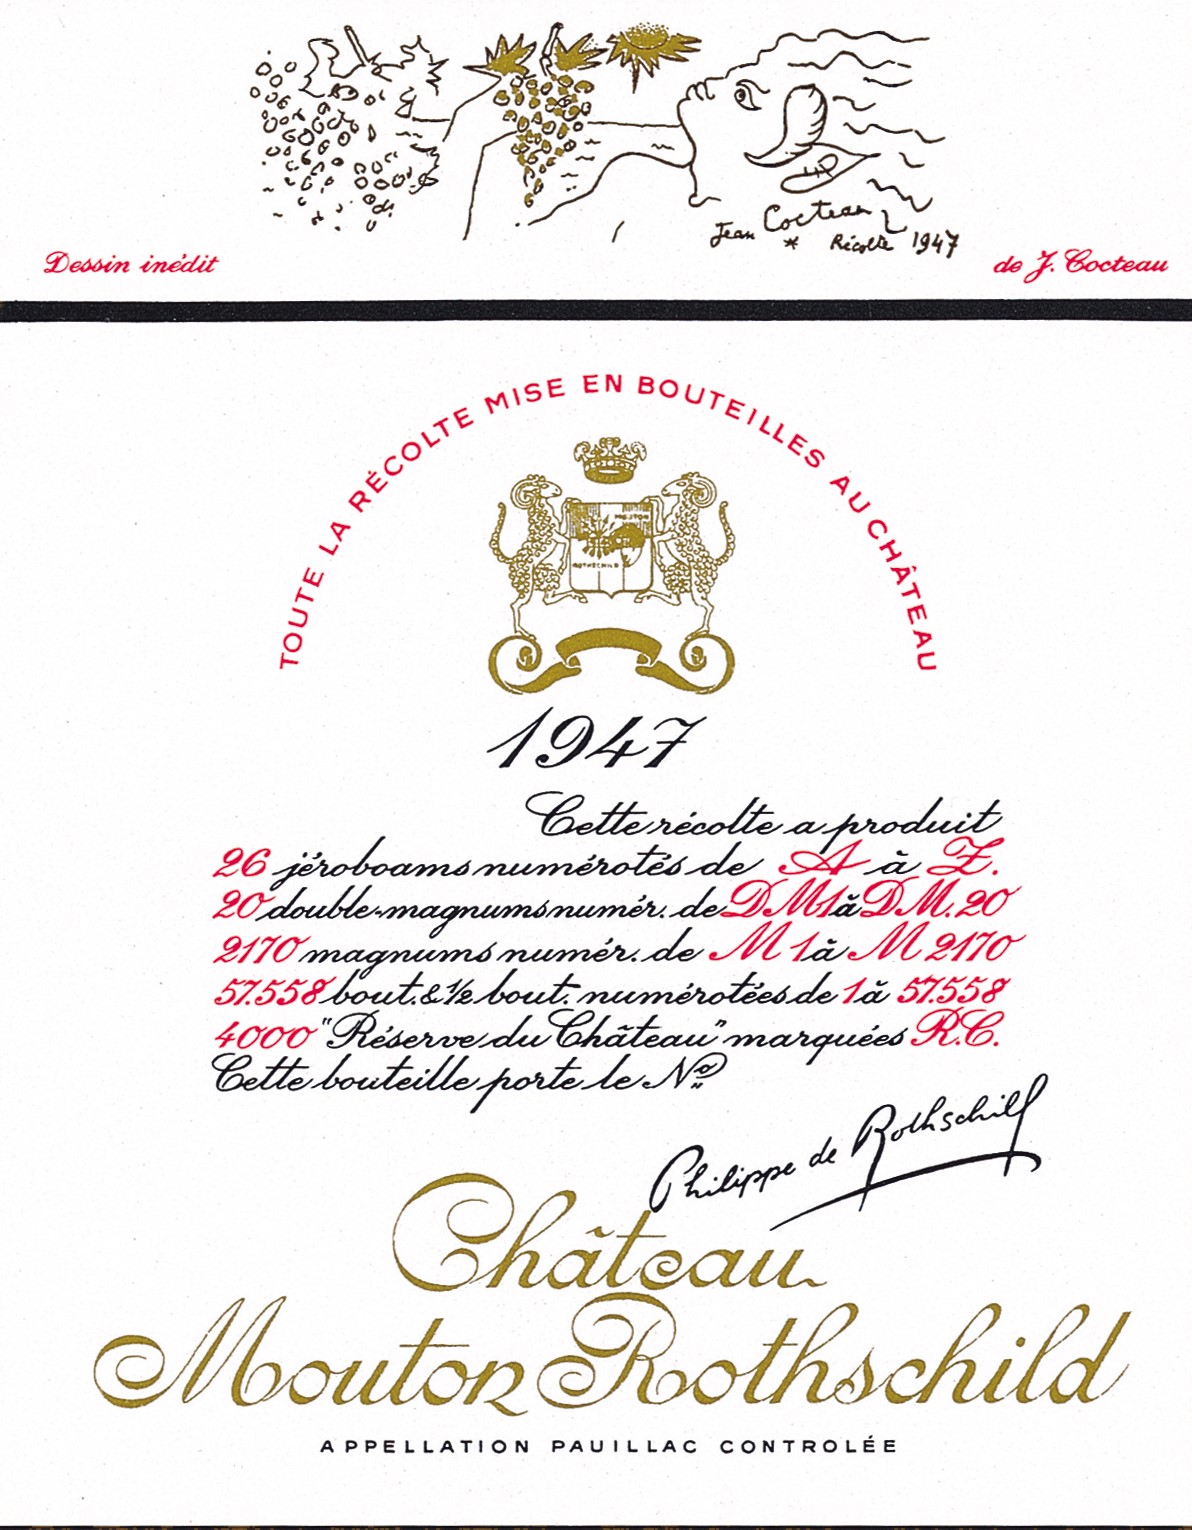 Jean Cocteau
* Récolte 1947
Dessin inédit
de J. Cocteau
TOUTE LA RÉCOLTE MISE EN BOUTEILLES AU CHÂTEAU
MOUTON
ROTHSCHILD
1947
Cette récolte a produit
26 jéroboams numérotés de A à Z.
20 double-magnums numér. de DM1 à DM.20
2170 magnums numér. de M1 à M2170
57.558 bout. & 1/2 bout. numérotées de 1 à 57.558
4000 "Réserve du Château" marquées R.C.
Cette bouteille porte le No
Philippe de Rothschild
Château
Mouton Rothschild
APPELLATION PAUILLAC CONTROLÉE